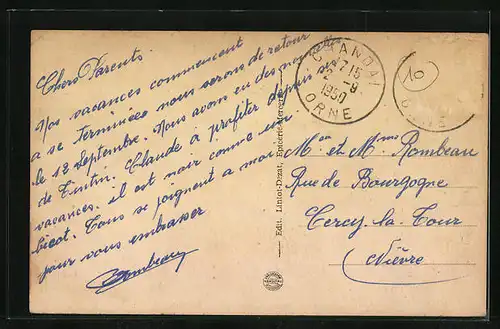 Chers Parents.
Nos vacances commencent
a se terminées nous serons de retour
le 12 Septembre. Nous avon eu des nouvelles
de Tintin. Claude à profiter depuis ses
vacances. il est noir comme un
bicot. Tous se joignent a moi
pour vous embrasser
Rombeau
Edit. Liniot-Dizat, Epicerie-Mercerie
CHANDAI
17 15
2 - 9
1950
ORNE
Mr et Mme Rombeau
Rue de Bourgogne
Cercy-la-Tour
Nièvre